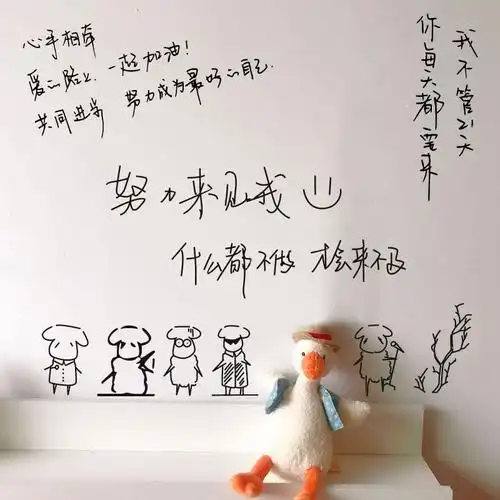 心手相牵
爱的路上 一起加油!
共同进步 努力成为最好的自己.
我不管21天
你每天都要来
努力来见我
什么都不做 才会来不及